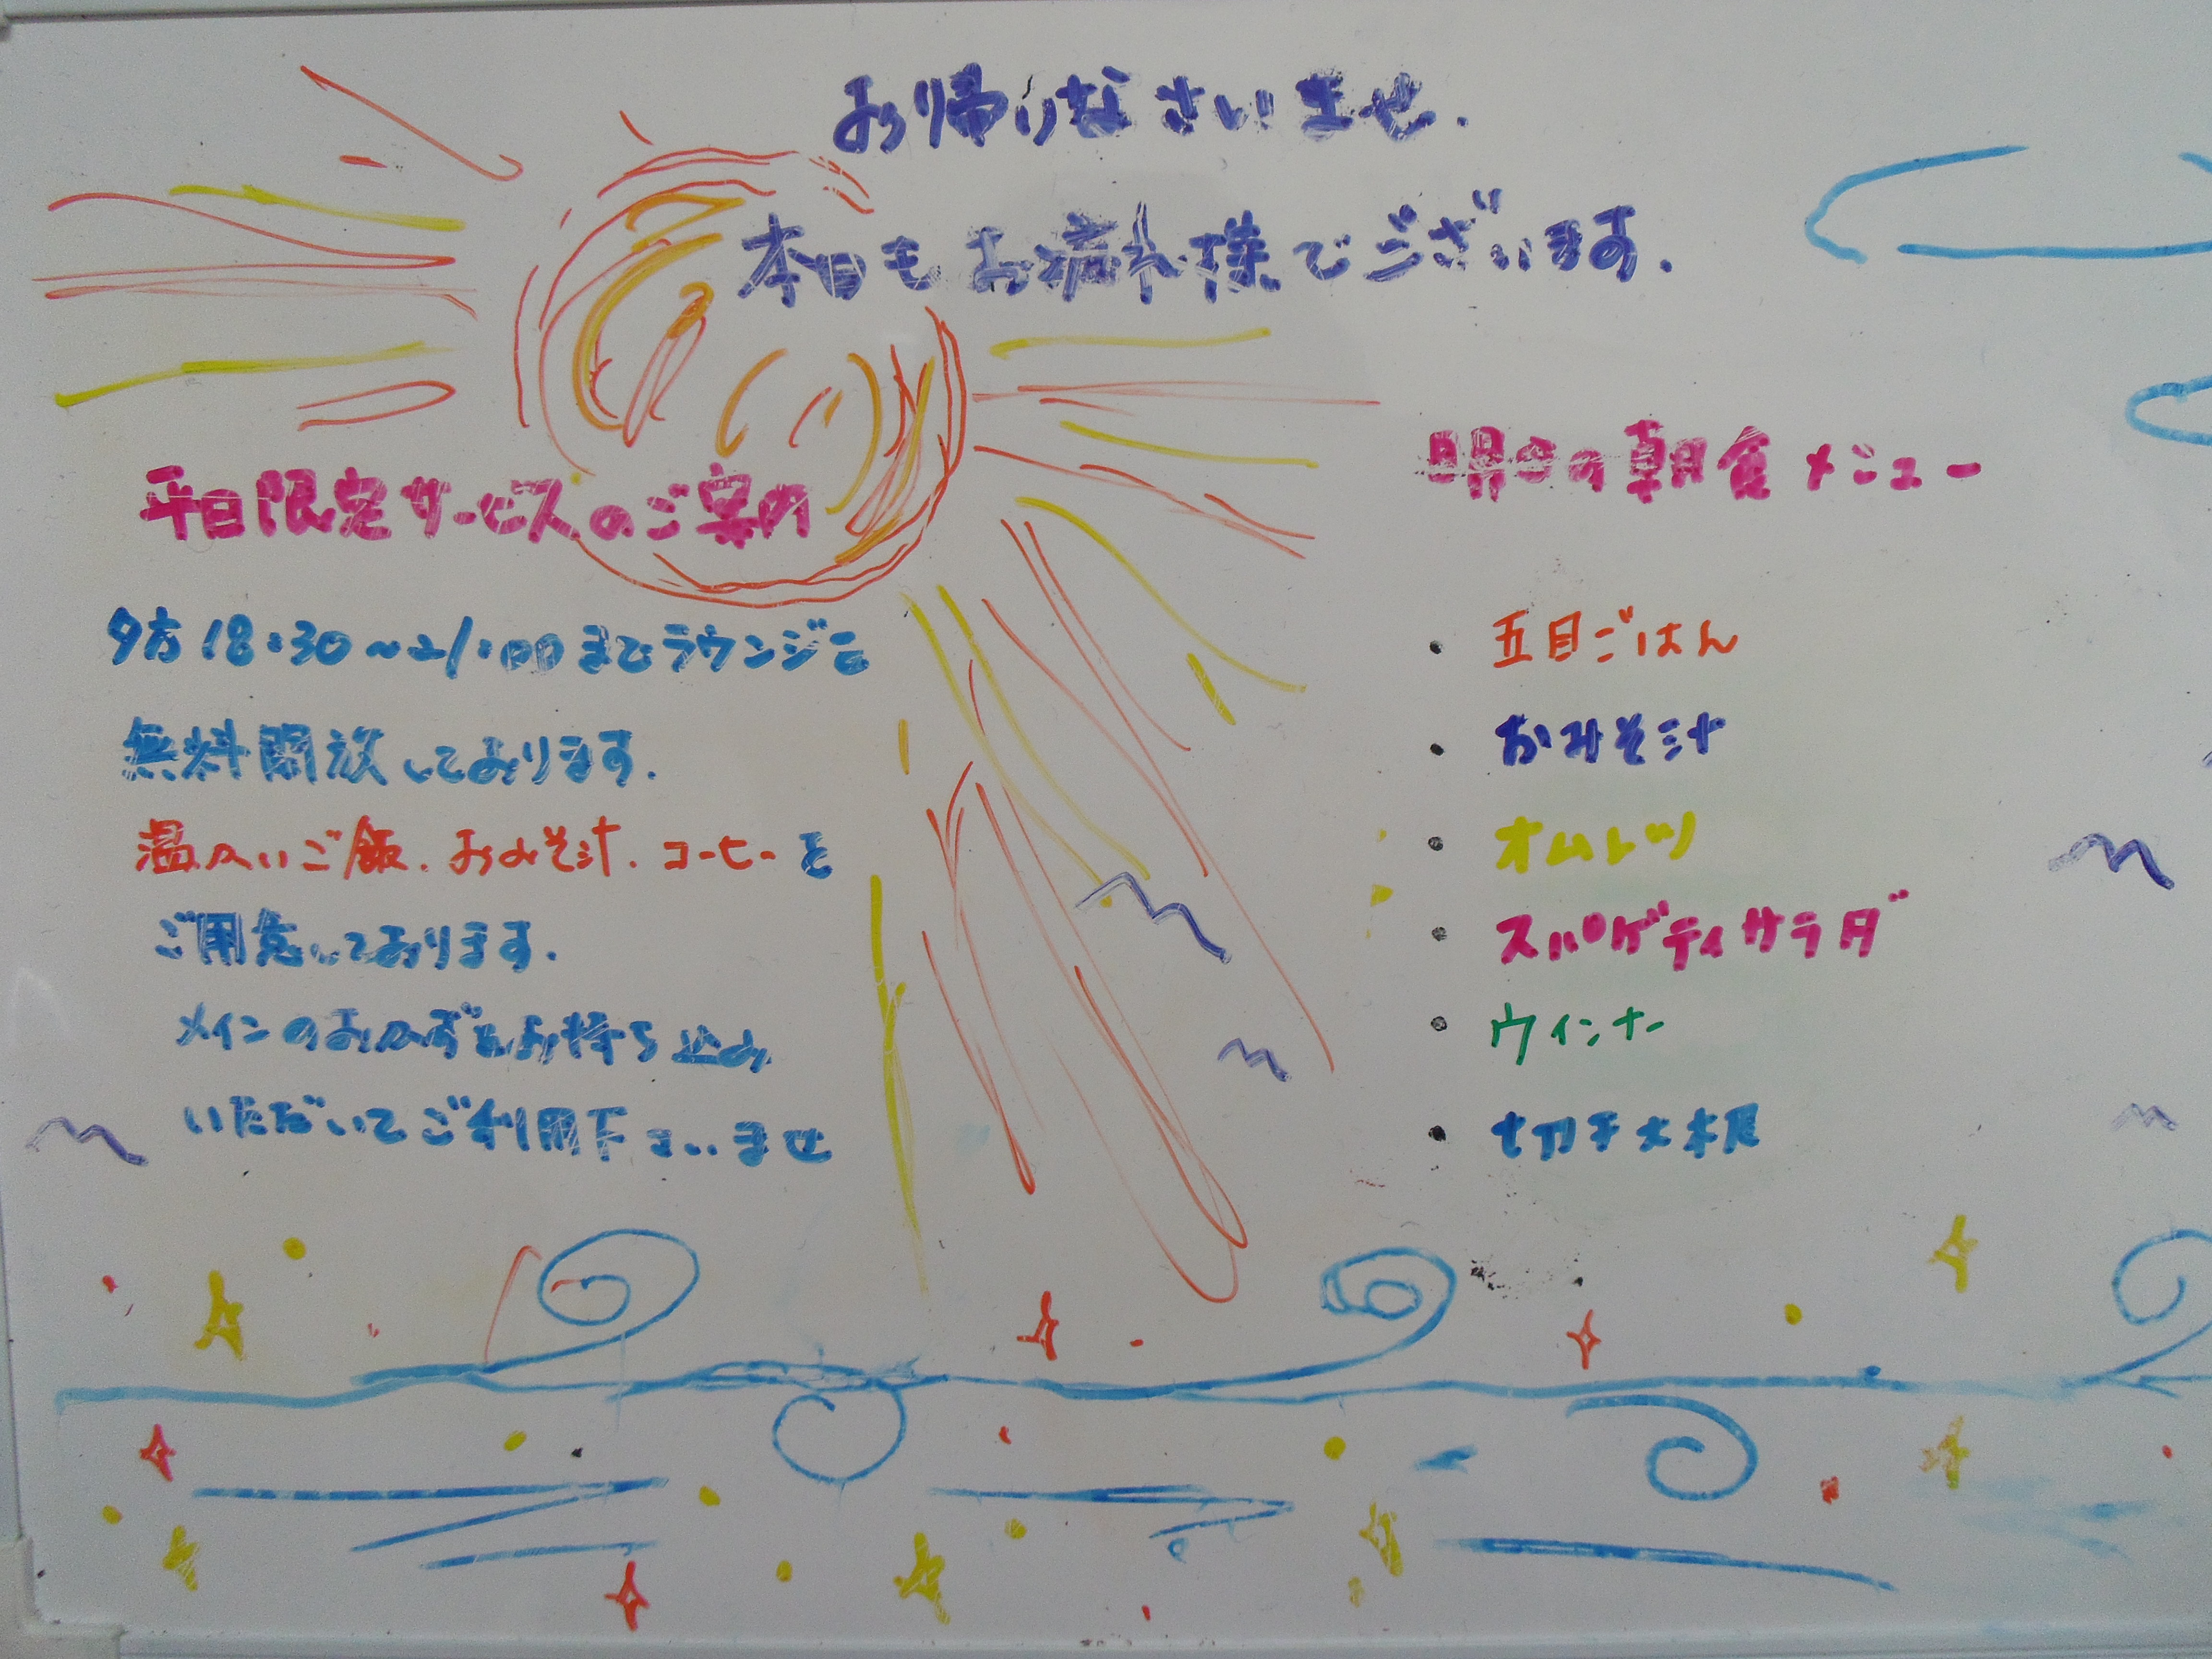 お帰りなさいませ.
本日もお疲れ様でございます.
平日限定サービスのご案内
夕方18:30～21:00までラウンジを
無料開放しております.
温かいご飯.おみそ汁.コーヒーを
ご用意しております.
メインのおかずをお持ち込み
いただいてご利用下さいませ
の朝食メニュー
・五目ごはん
・おみそ汁
・オムレツ
・スパゲティサラダ
・ウィンナー
・切干大根